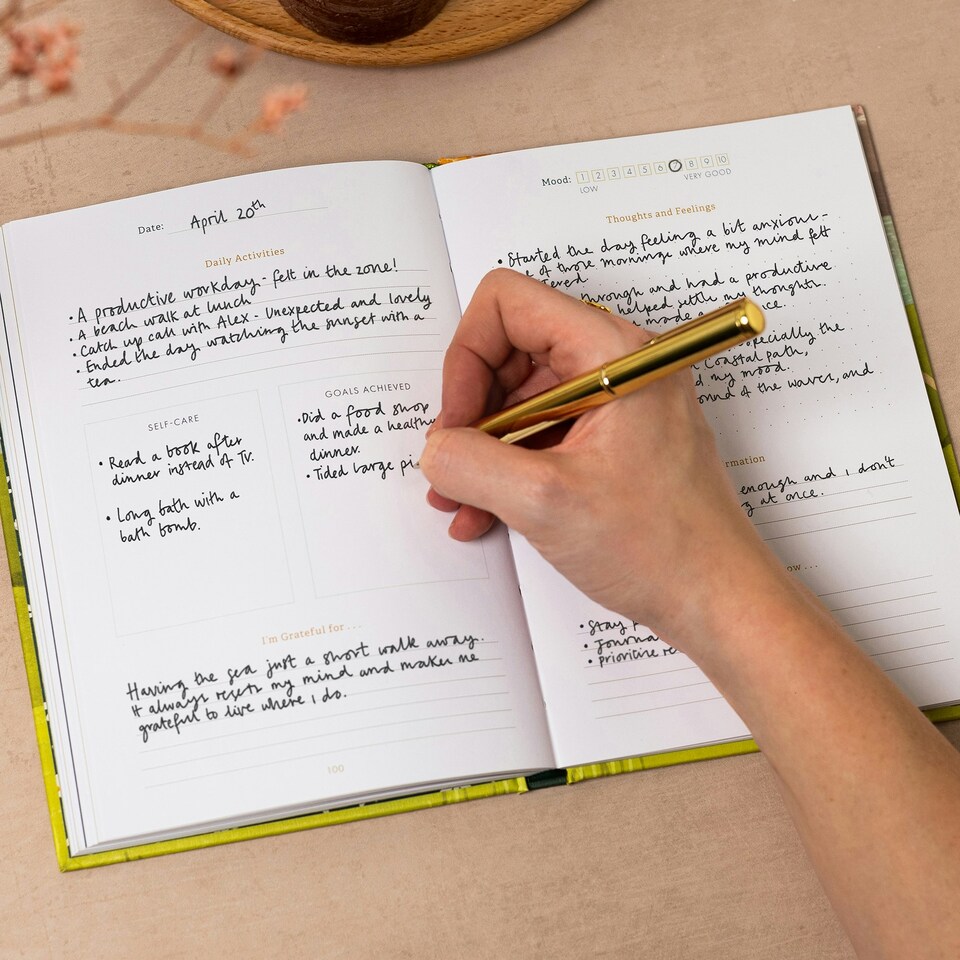 Date: April 20th
Daily Activities
• A productive workday - felt in the zone!
• A beach walk at lunch
• Catch up call with Alex - Unexpected and lovely
• Ended the day watching the sunset with a
tea.
SELF-CARE
• Read a book after
dinner instead of TV.
• Long bath with a
bath bomb.
GOALS ACHIEVED
• Did a food shop
and made a healthy
dinner.
• Tided large
I'm Grateful for . . .
Having the sea just a short walk away.
It always resets my mind and makes me
grateful to live where I do.
100
Mood: 1 2 3 4 5 6 7 8 9 10
LOW VERY GOOD
Thoughts and Feelings
• Started the day feeling a bit anxious -
of those mornings where my mind felt
through and had a productive
helped settle my thoughts.
made a
especially the
coastal path,
my mood.
of the waves, and
enough and I don't
at once.
• Stay
•
• prioritise